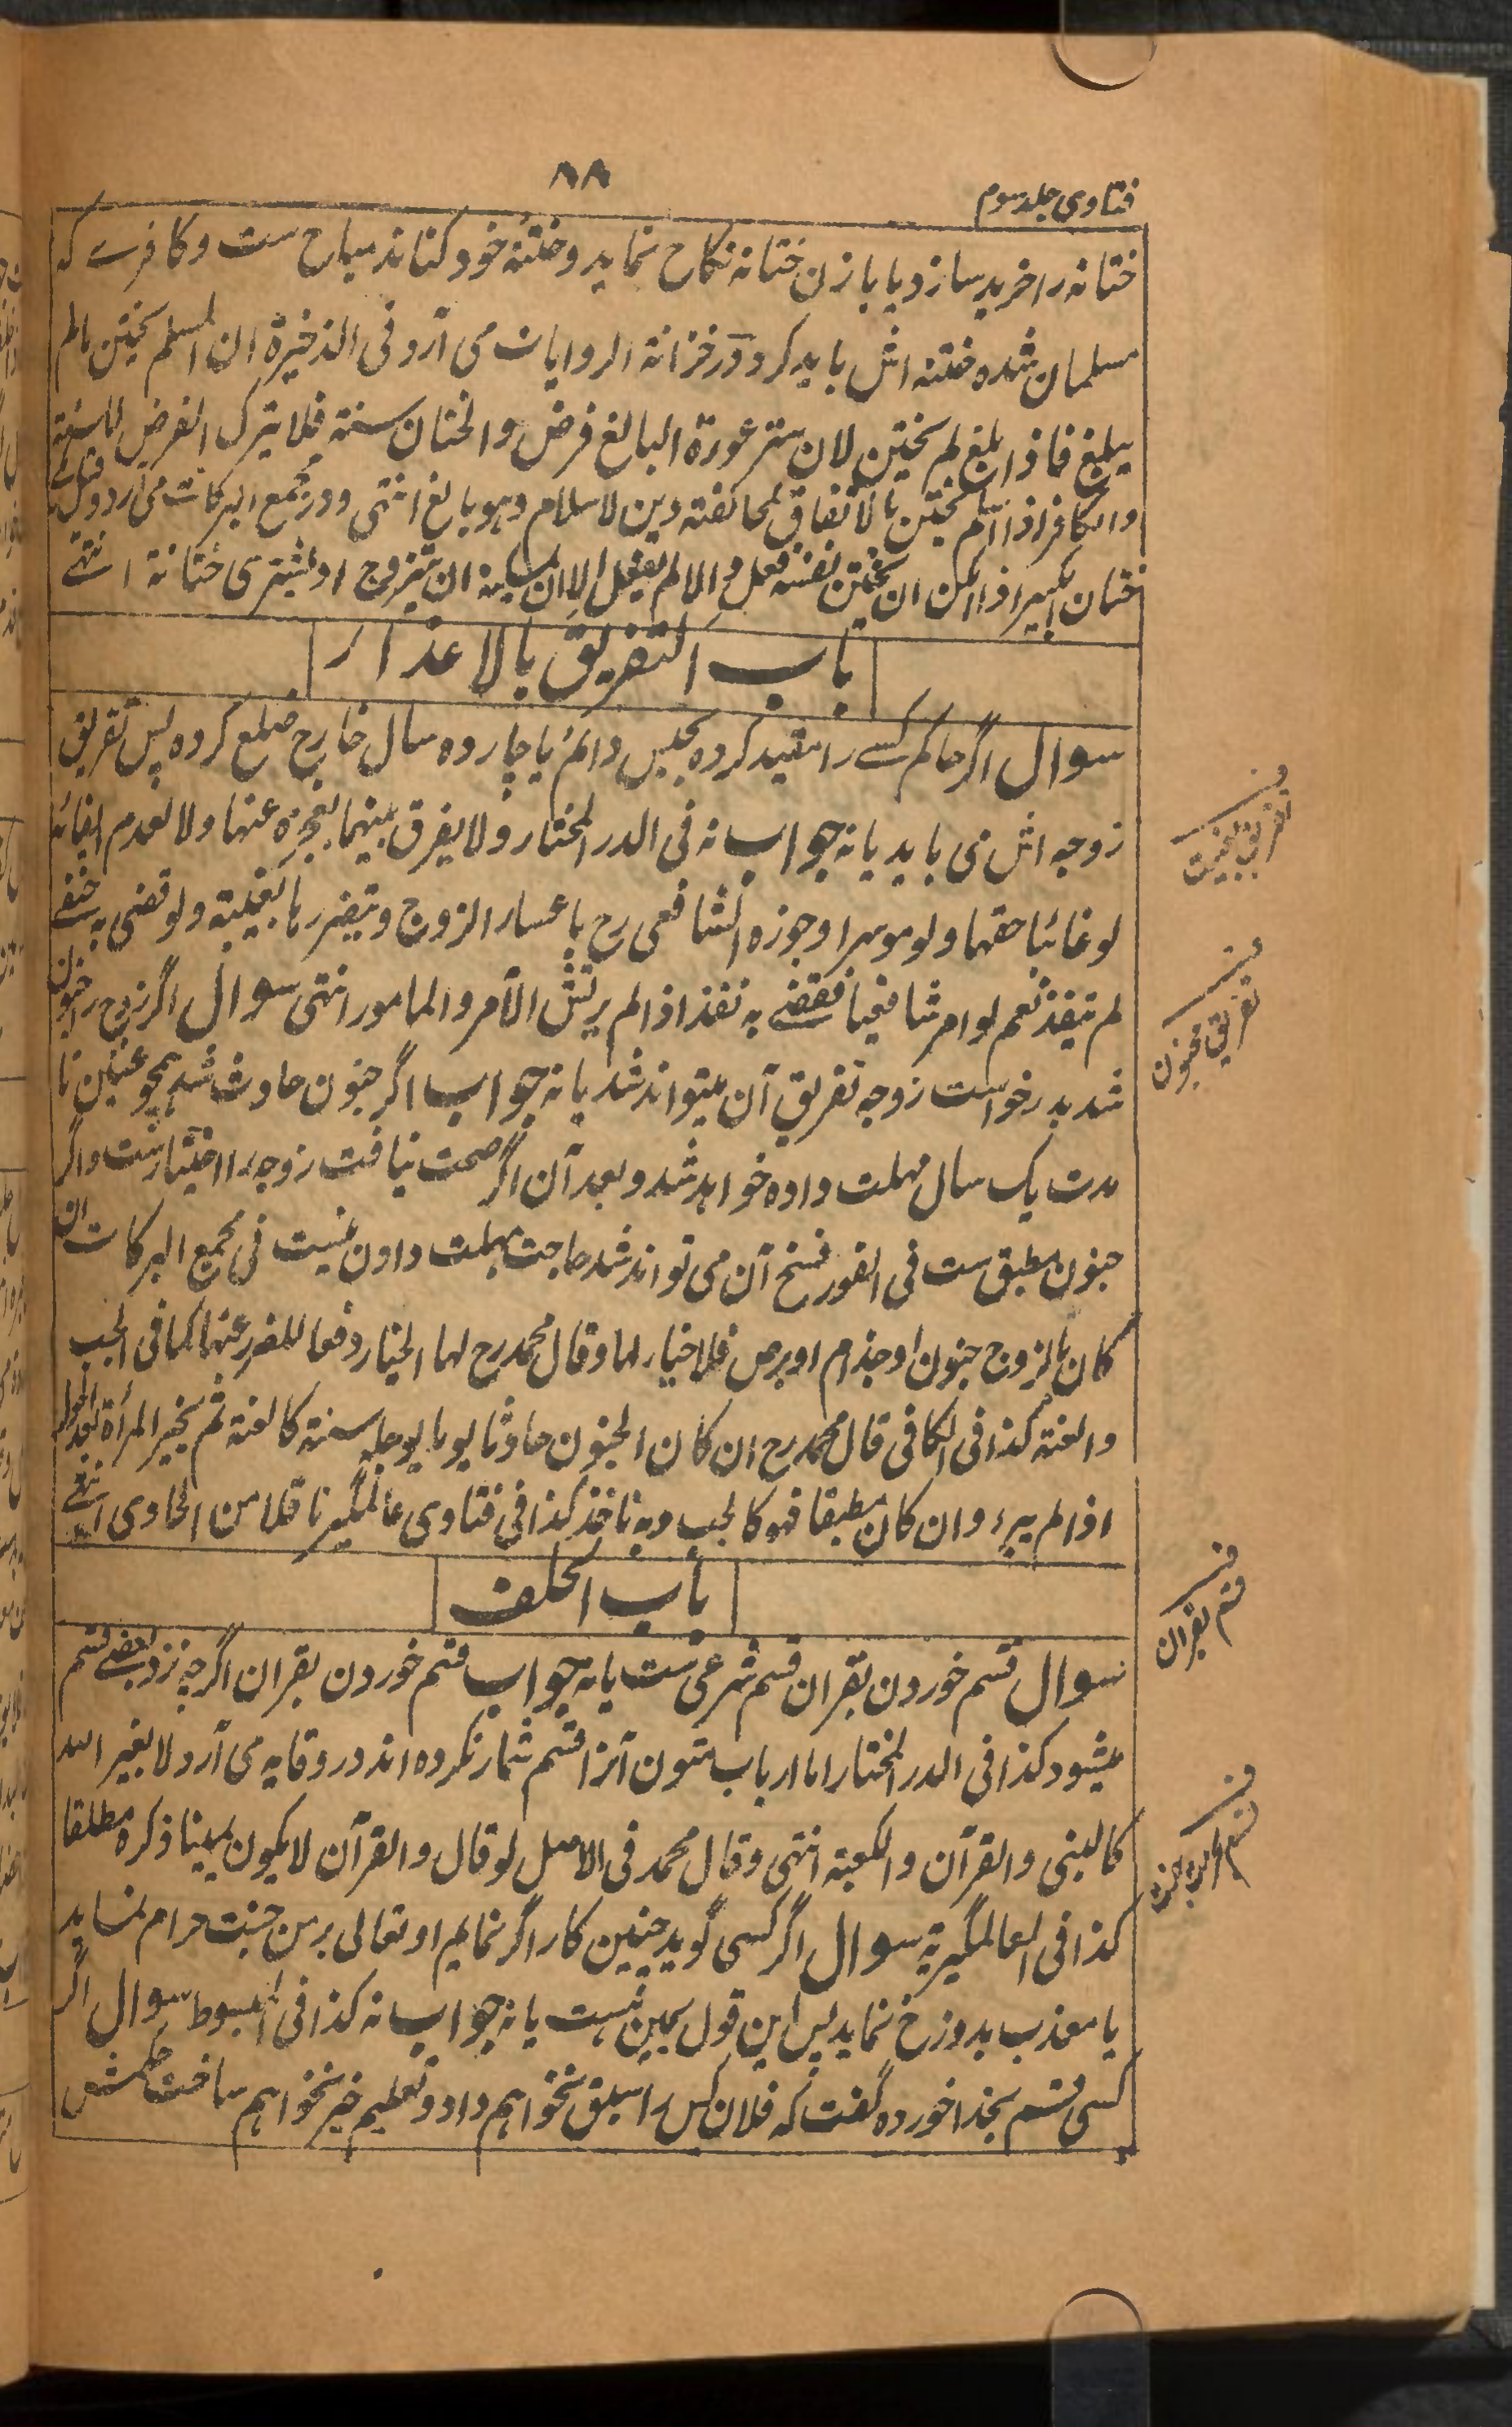 فتاوی جلد سوم
۸۸
ختانه را خرید سازد یا با زن ختانه نکاح نماید وختنهٔ خود کناند مباح ست و کافرے که
مسلمان شده ختنه اش باید کرد و در خزانة الروایات می آرد فی الذخیرة ان المسلم یختن مالم
یبلغ فاذا بلغ لم یختن لان ستر عورة البالغ فرض والختان سنة فلا یترک الفرض للسنة
والکافر اذا اسلم یختن بالاتفاق لمخالفته دین الاسلام وهو بالغ انتهی ودر مجمع البرکات می آرد وقیل فی
ختان الکبیر اذا امکن ان یختن نفسه فعل والا لم یفعل الا ان یمکنه ان یتزوج او یشتری ختانة انتهے
باب التفریق بالاعذار
سوال اگر حاکم کسے را مقید کرده بحبس دائم یا چارده سال خارج ضلع کرده پس تفریق
زوجه اش می باید یا نه جواب نه فی الدر المختار ولا یفرق بینهما بعجزه عنها ولا بعدم ایفائه
لو غائبا حقها ولو موسرا وجوزه الشافعی رح باعسار الزوج وبتضررها بغیبته ولو قضی به حنفے
لم ینفذ نعم لو امر شافعیا فقضے به نفذ اذا لم یرتش الآمر والمامور انتهی سوال اگر زوج را جنون
شد بدرخواست زوجه تفریق آن میتواند شد یا نه جواب اگر جنون حادث شد همچو عنین تا
مدت یک سال مهلت داده خواهد شد وبعد آن اگر صحت نیافت زوجه را اختیار ست واگر
جنون مطبق ست فی الفور فسخ آن می تواند شد حاجت مهلت دادن نیست فی مجمع البرکات ان
کان بالزوج جنون او جذام او برص فلا خیار لها وقال محمد رح لها الخیار دفعا للضرر عنها کما فی الجب
والعنة کذا فی الکافی قال محمد رح ان کان الجنون حادثا یوجله سنة کالعنة ثم یخیر المرأة بعد الحول
اذا لم یبرء وان کان مطبقا فهو کالجب وبه ناخذ کذا فی فتاوی عالمگیر ناقلا من الحاوی انتهے
باب الحلف
سوال قسم خوردن بقران قسم شرعی ست یا نه جواب قسم خوردن بقران اگرچه نزد بعضے قسم
میشود کذا فی الدر المختار اما ارباب متون آنرا قسم شمار نکرده اند در وقایه می آرد لا بغیر الله
کالنبی والقرآن والکعبة انتهی وقال محمد فی الاصل لو قال والقرآن لا یکون یمینا ذکره مطلقا
کذا فی العالمگیریة سوال اگر کسی گوید چنین کار اگر نمایم او تعالی بر من جنت حرام نماید
یا معذب بدوزخ نماید پس این قول یمین ست یا نه جواب نه کذا فی المبسوط سوال اگر
کسی قسم بخدا خورده گفت که فلان کس را سبق نخواهم داد وتعلیم خیر نخواهم ساخت حکمش
تفریق مجنون
قسم بقران